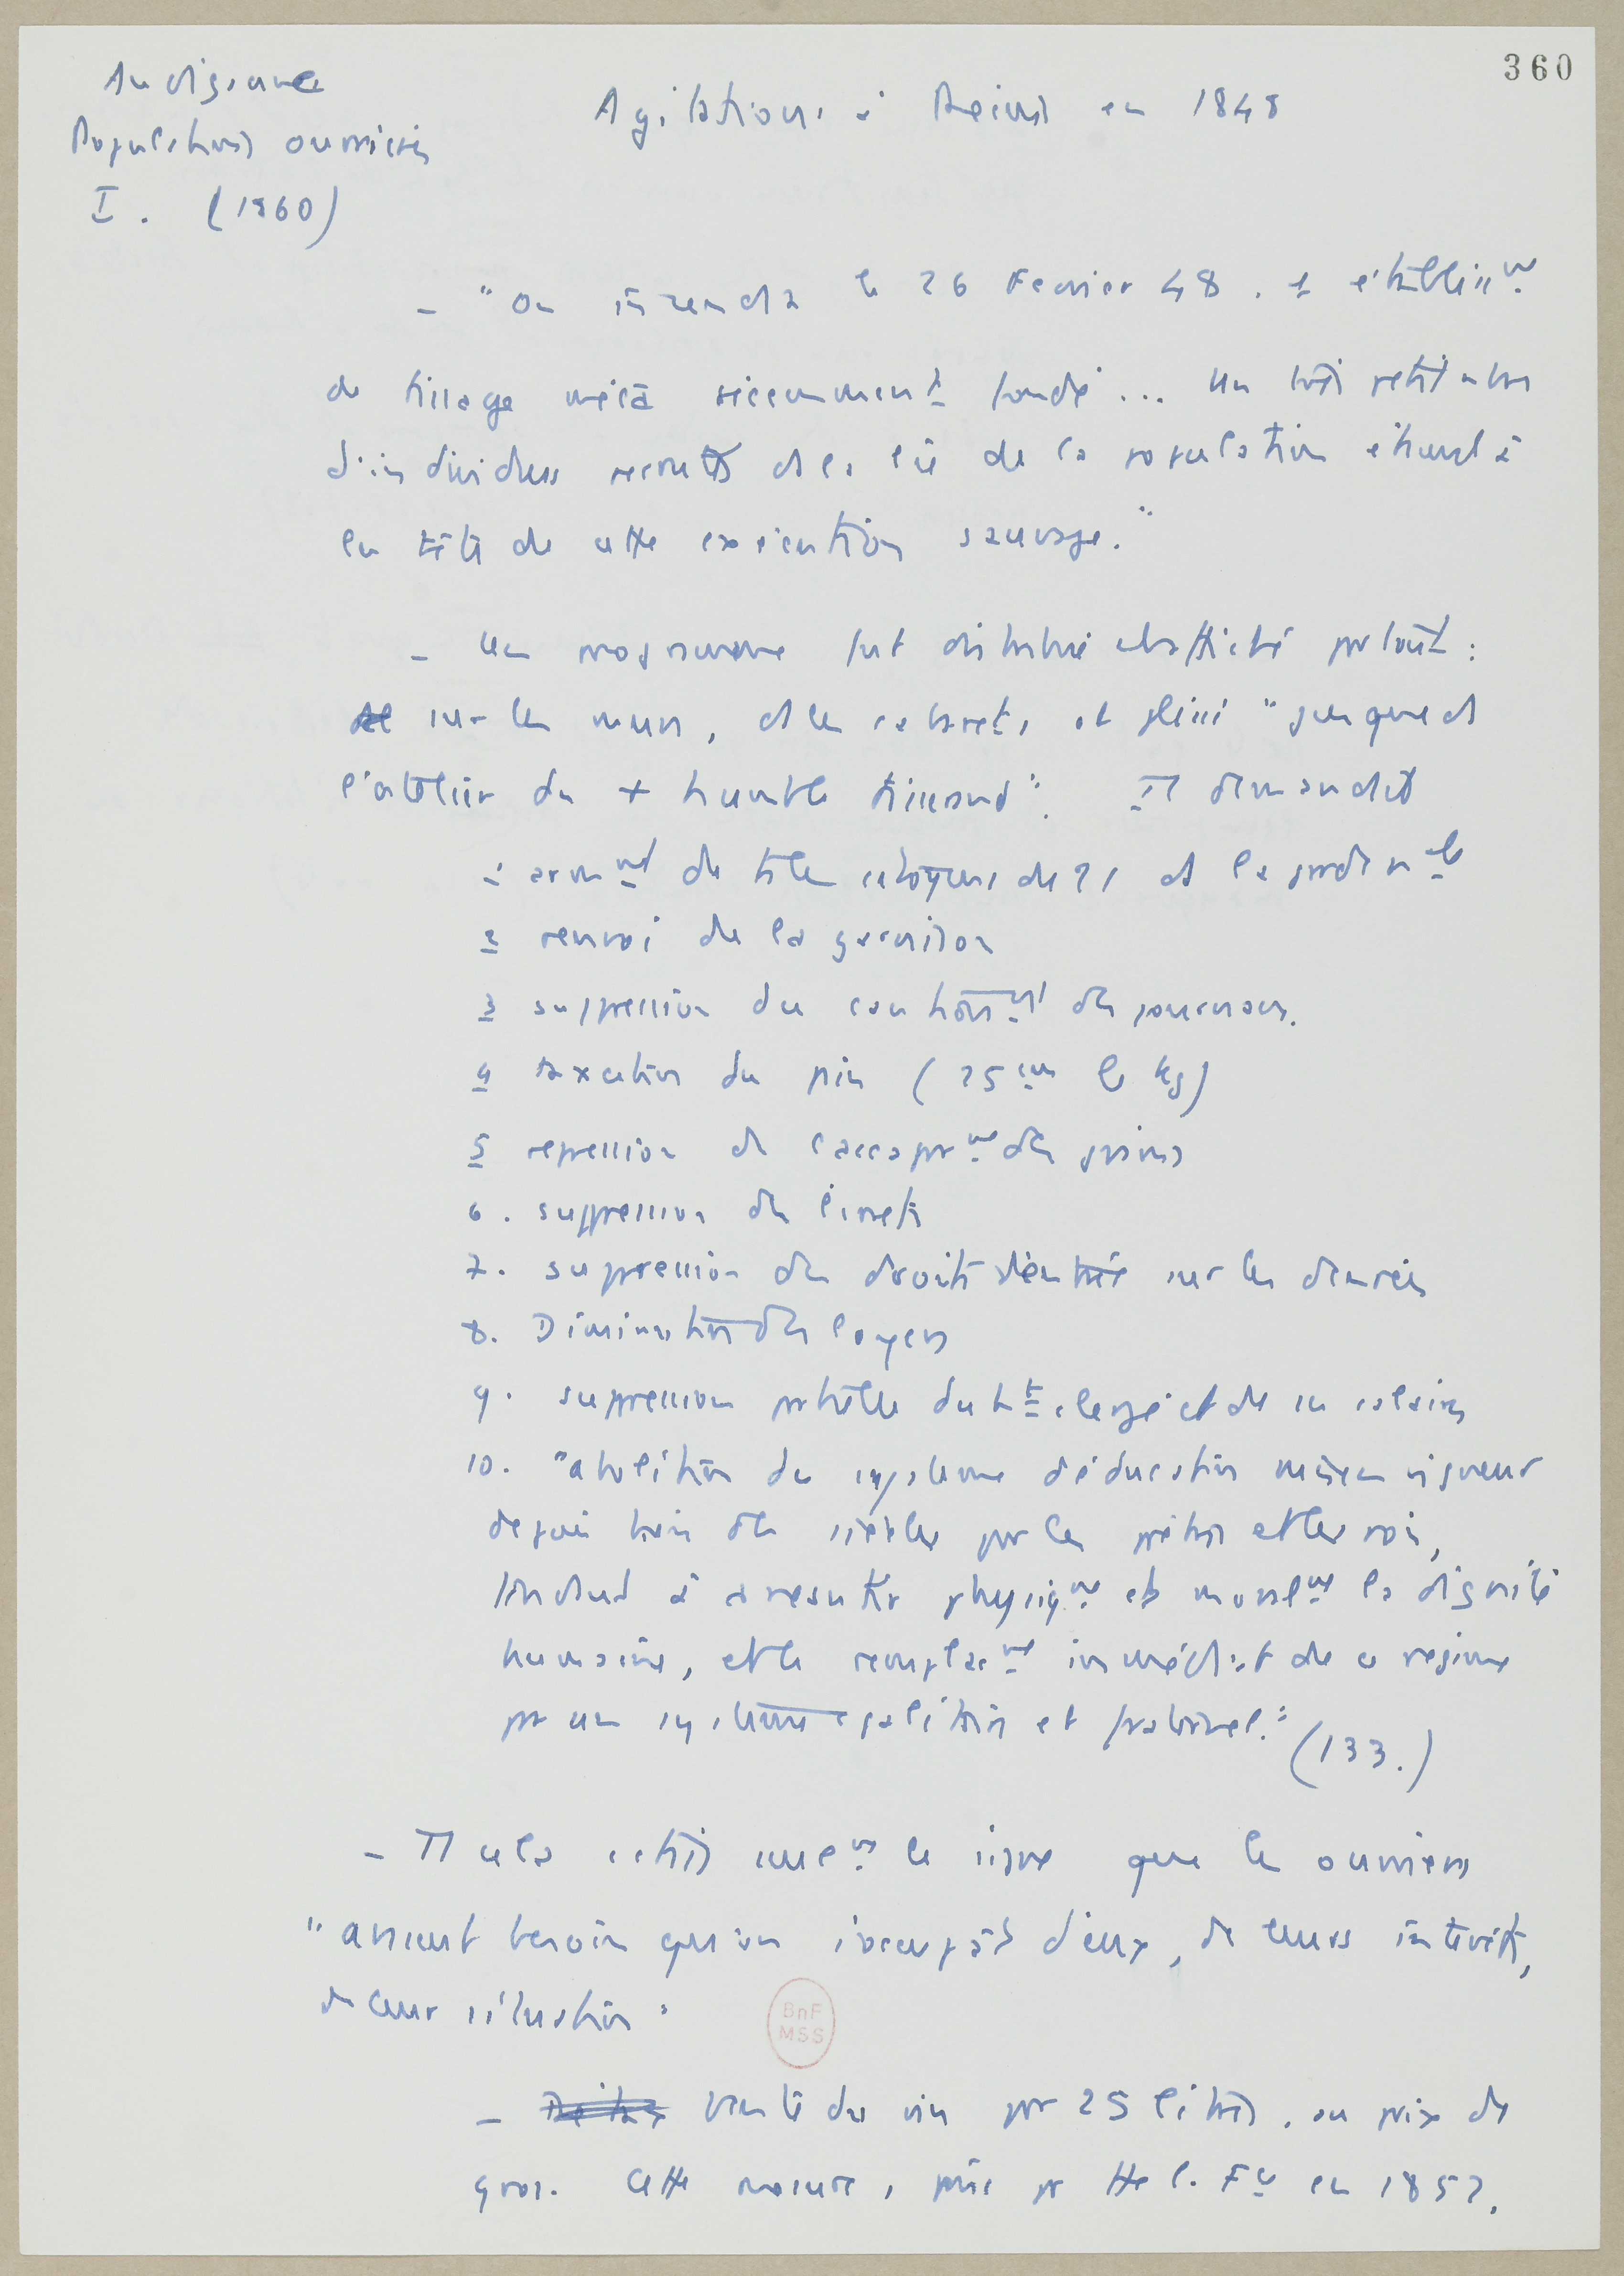 360
Audiganne
Populations ouvrières
I. (1860)
Agitations à Reims en 1848
- "On incendia le 26 Février 48. 1 établissmt
de tissage méca récemment fondé... Un très petit nbr
d'individus recrutés ds la lie de la population étaient à
la tête de cette exécution sauvage."
- Un programme fut distribué et affiché partout :
sur les murs, ds les cabarets, et glissé "jusque ds
l'atelier du + humble tisserand". Il demandait
1 armmt de ts les citoyens de 21 ds la garde nle
2 renvoi de la garnison
3 suppression du cautionnmt des journaux.
4 taxation du pain (25 cms le kg)
5 repression de l'accaparmt des grains
6. suppression des livrets
7. suppression des droits d'entrée sur les denrées
8. Diminution des loyers
9. suppression partielle du ht clergé et de ses salaires
10. "abolition du système d'éducation mis en vigueur
depuis tron des siècles par les prêtres et les rois,
tendant à abrutir physiqmt et moralmt la dignité
humaine, et le remplacmt immédiat de ce régime
par un système égalitaire et fraternel." (133.)
- Tt cela était seulmt le signe que les ouvriers
"avaient besoin qu'on s'occupât d'eux, de leurs intérêts,
de leur situation"
BnF
MSS
- Vente du vin par 25 litres, au prix de
gros. Cette mesure, prise par tte la Fce en 1852.